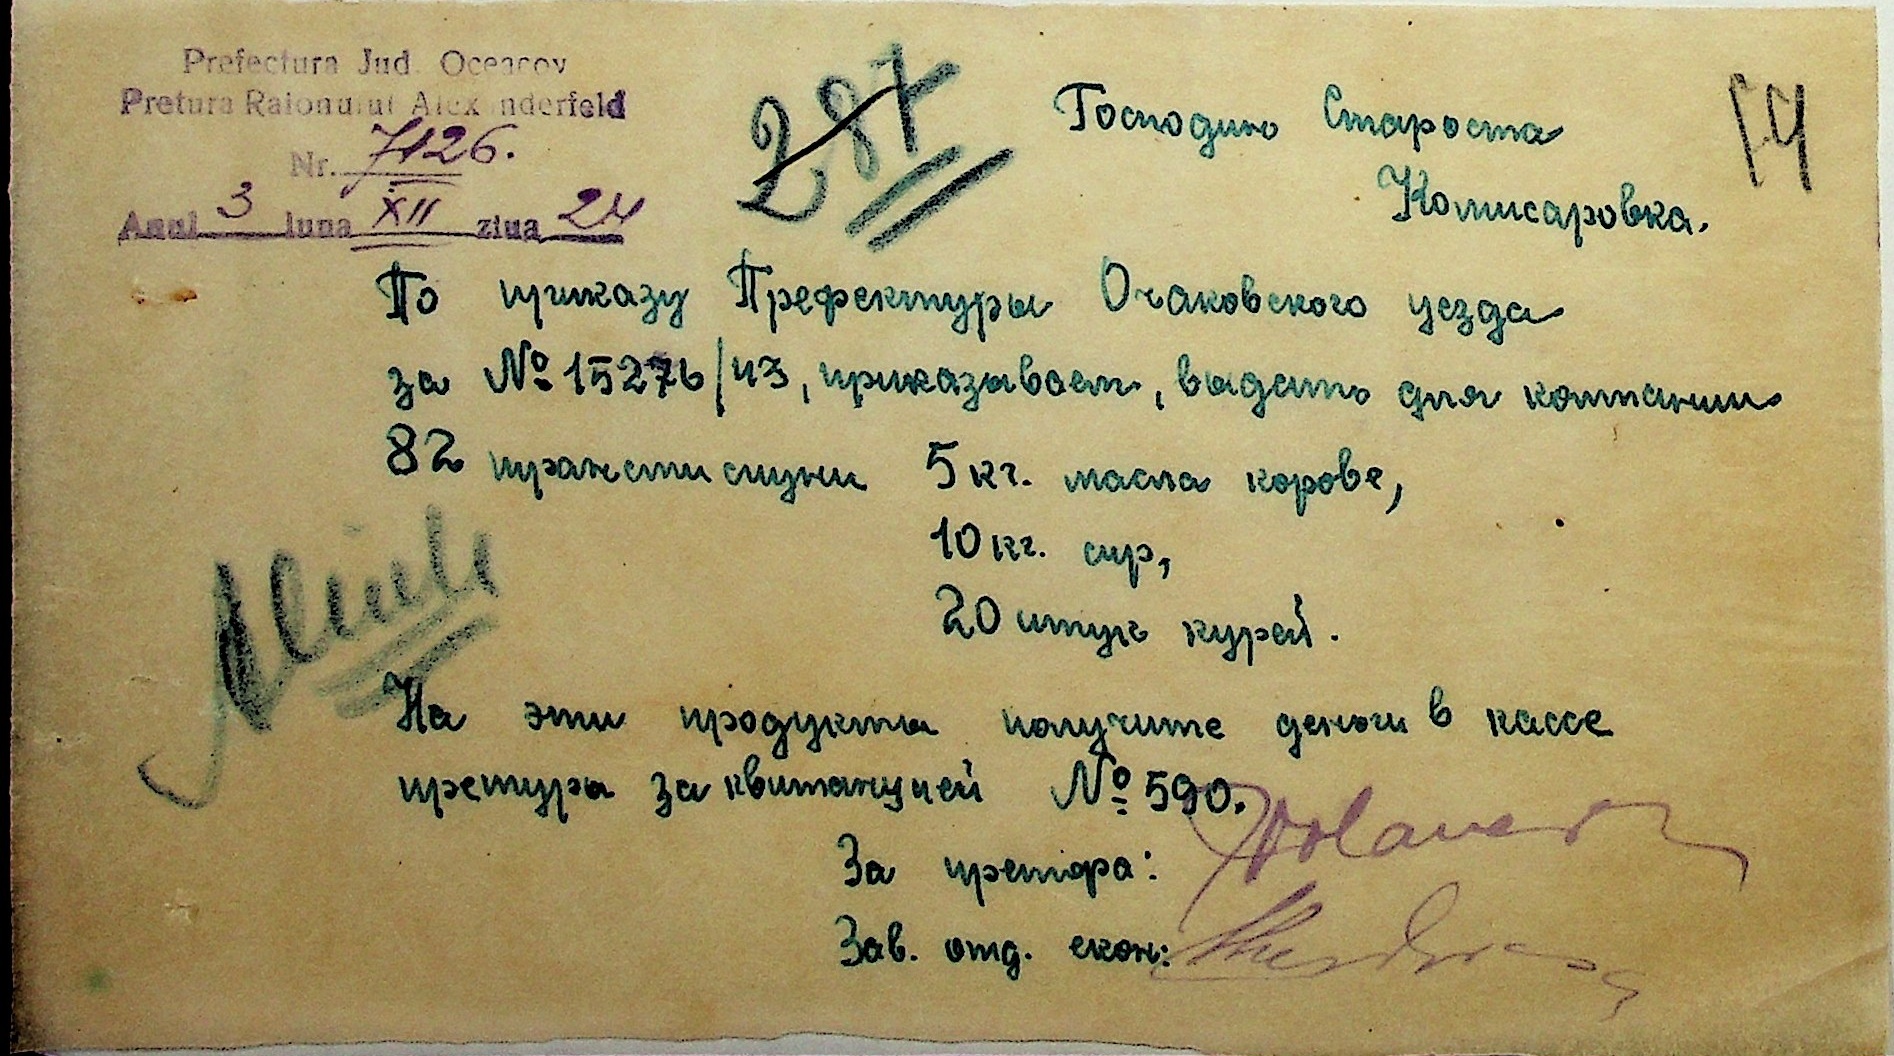 Prefectura Jud. Oceacov
Pretura Raionului Alexanderfeld
Nr. 7126.
Anul 3 luna XII ziua 24
287
54
Господину Староста
Комисаровка.
По приказу Префектуры Очаковского уезда
за № 15276/43, приказываем, выдать для компании
82 пражстисцуни 5 кг. масла корове,
10 кг. сир,
20 штук курей.
На эти продукты получите деньги в кассе
претуры за квитанцией № 590.
За претора:
Зав. отд. екон: